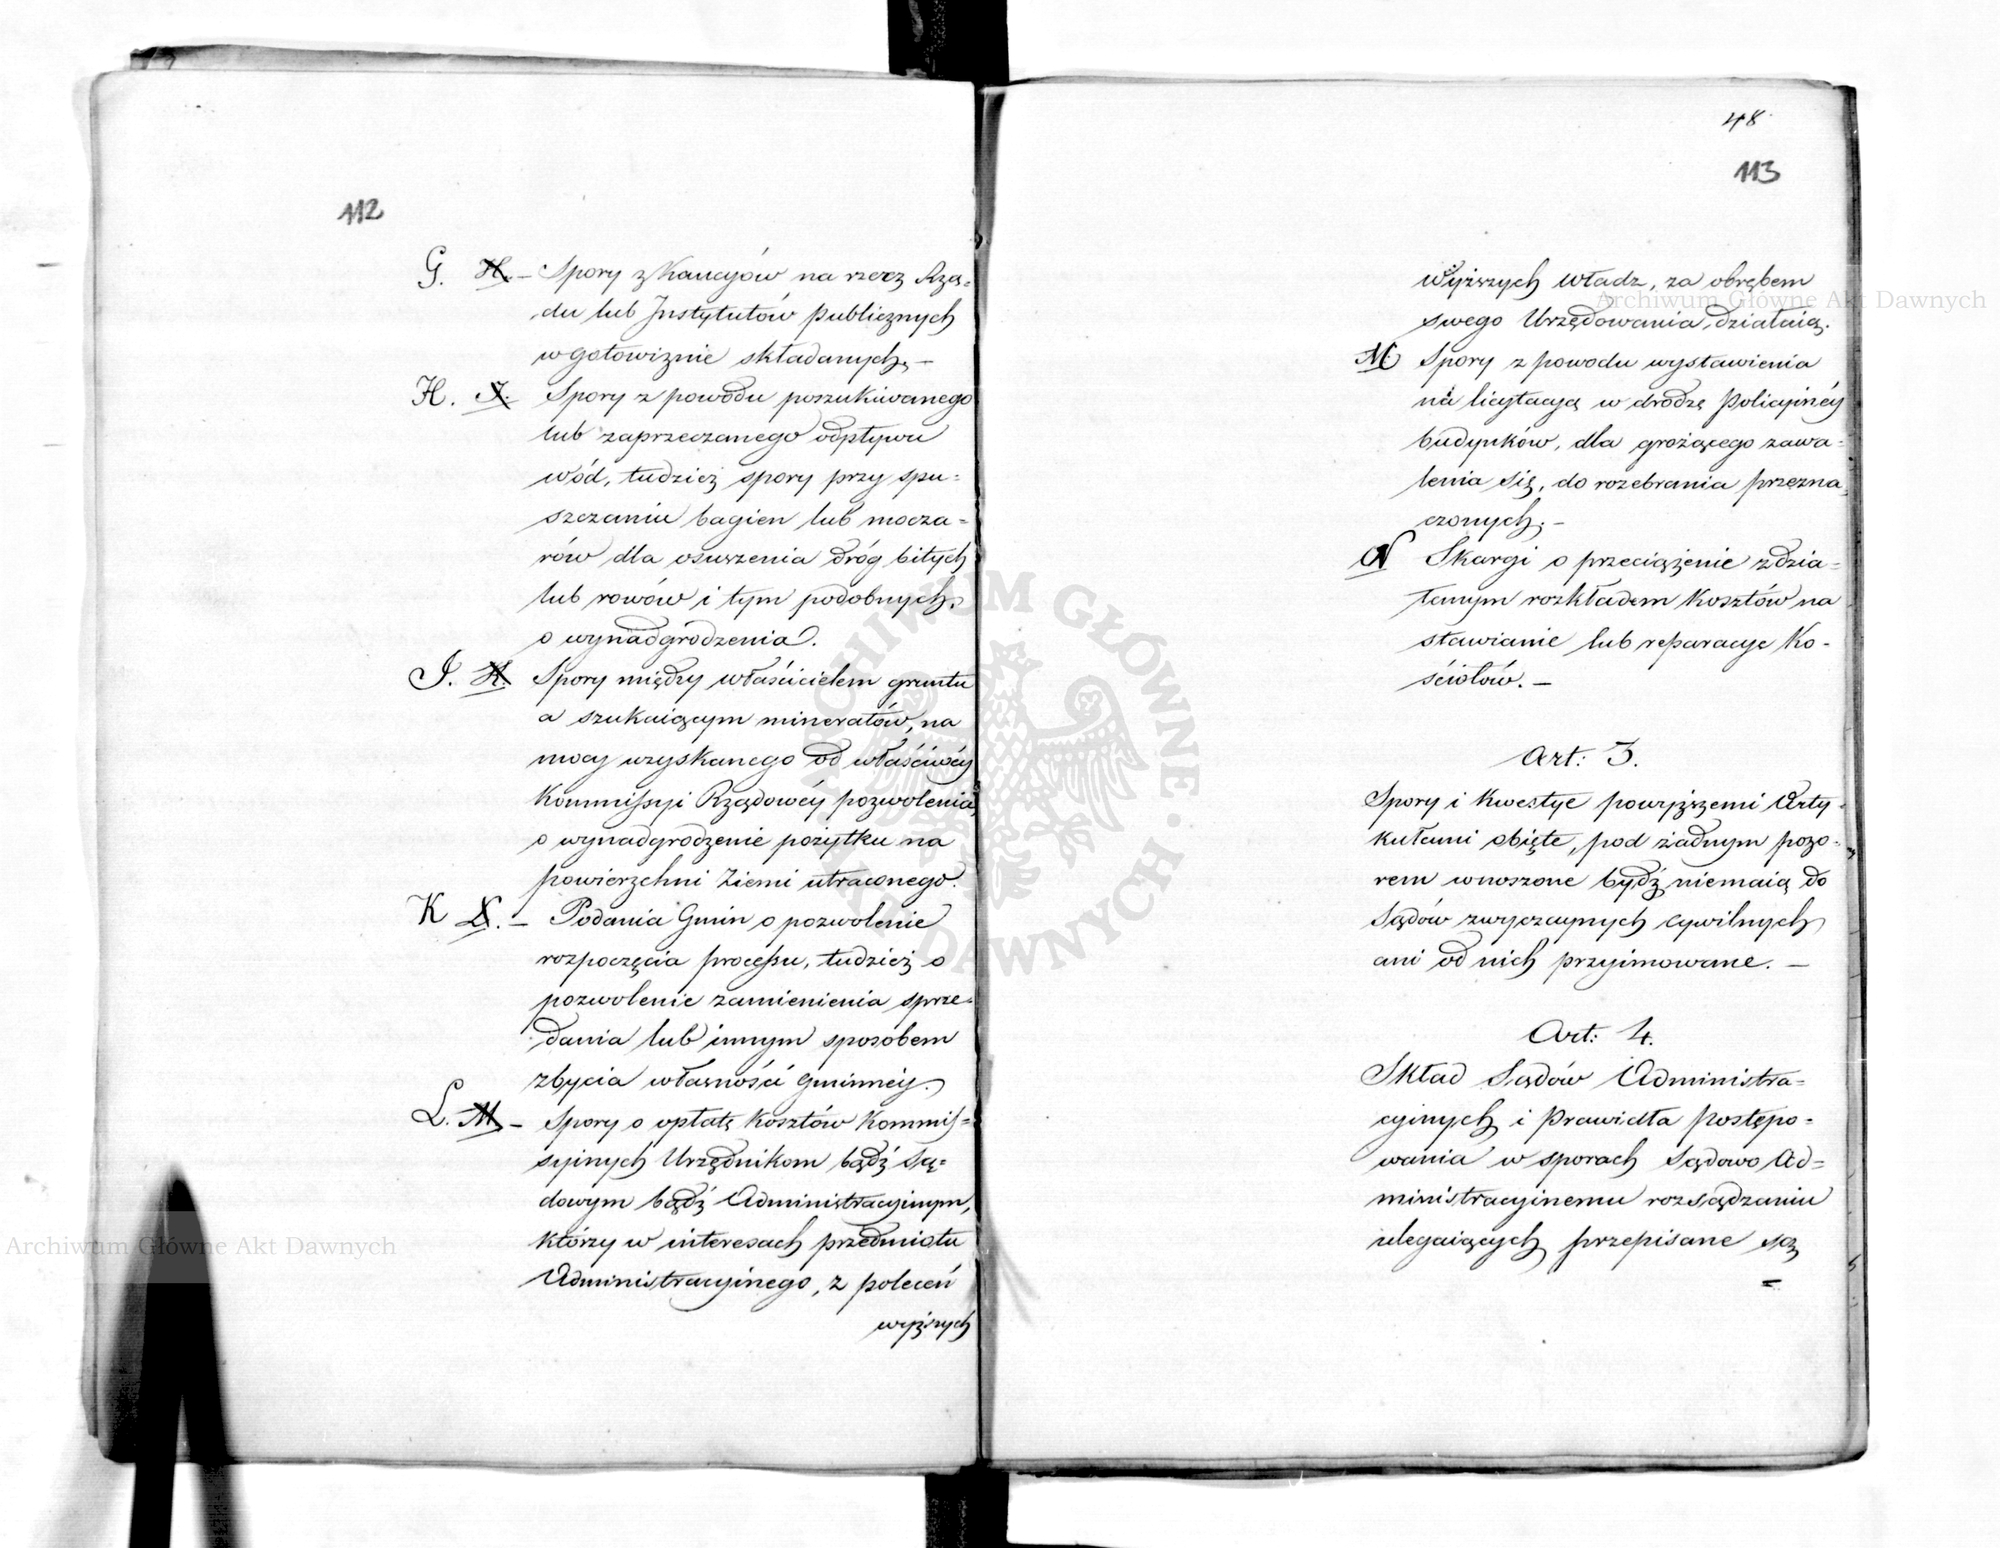 112
G. H. – Spory z Kaucyów na rzecz Rzą-
du lub Instytutów publicznych
w gotowiznie składanych. –
H. I. Spory z powodu poszukiwanego
lub zaprzeczanego odpływu
wód, tudzież spory przy spu-
szczaniu bagien lub mocza-
rów dla osuszenia dróg bitych
lub rowów i tym podobnych,
o wynadgrodzenia.
I. K. Spory między właścicielem gruntu
a szukaiącym minerałów, na
mocy uzyskanego od właściwéy
Kommissyi Rządowéy pozwolenia,
o wynadgrodzenie pożytku na
powierzchni Ziemi utraconego.
K L. – Podania Gmin o pozwolenie
rozpoczęcia processu, tudzież o
pozwolenie zamienienia sprze-
dania lub innym sposobem
zbycia własności gminnéy.
L. M – Spory o opłatę Kosztów Kommis-
syinych Urzędnikom bądź Są-
dowym bądź Administracyinym,
którzy w interesach przedmiotu
Administracyinego, z poleceń
wyższych
48
113
wyższych Władz, za obrębem
swego Urzędowania, działaią.
M Spory z powodu wystawienia
na licytacyą w drodze Policyinéy
budynków, dla grożącego zawa-
lenia się, do rozebrania przezna-
czonych. –
N Skargi o przeciążenie zdzia-
łanym rozkładem Kosztów na
stawianie lub reparacye Ko-
ściołów. –
Art: 3.
Spory i Kwestye powyższemi Arty-
kułami obięte, pod żadnym pozo-
rem wnoszone bydź niemaią do
Sądów zwyczaynych cywilnych
ani od nich przyimowane. –
Art: 4.
Skład Sądów Administra-
cyinych i Prawidła Postępo-
wania w sporach Sądowo Ad-
ministracyinemu rozsądzaniu
ulegaiących przepisane są
Archiwum Główne Akt Dawnych
Archiwum Główne Akt Dawnych
ARCHIWUM GŁÓWNE AKT DAWNYCH